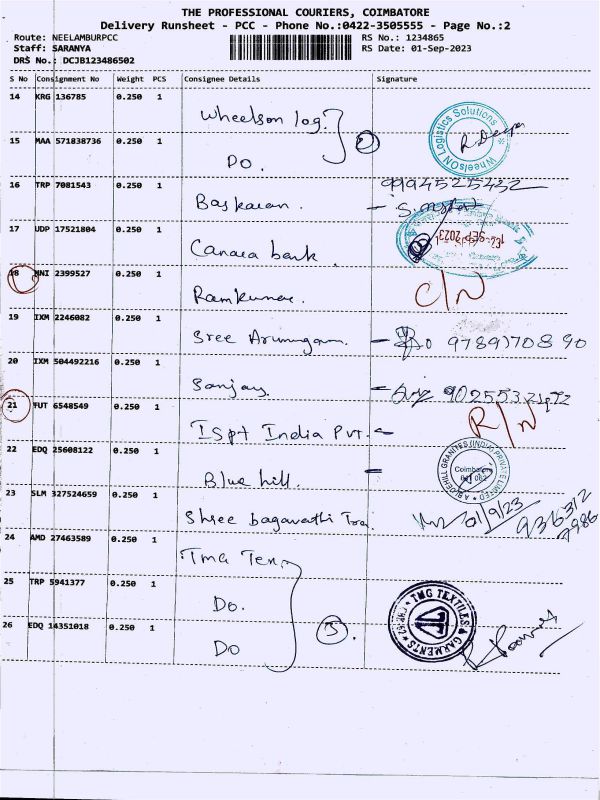 THE PROFESSIONAL COURIERS, COIMBATORE
Delivery Runsheet - PCC - Phone No.:0422-3505555 - Page No.:2
Route: NEELAMBURPCC RS No.: 1234865
Staff: SARANYA RS Date: 01-Sep-2023
DRS No.: DCJB123486502
S No Consignment No Weight PCS Consignee Details Signature
14 KRG 136785 0.250 1 Wheelson log.
WheelsON Logistics Solutions
15 MAA 571838736 0.250 1 Do. 2
16 TRP 7081543 0.250 1 Baskaran. 9994525432
17 UDP 17521804 0.250 1 Canara bank. SEP 2023
18 MNI 2399527 0.250 1 Ramkumar. C/N
19 IXM 2246082 0.250 1 Sree Arumugam.
20 IXM 504492216 0.250 1 Sanjay
21 FUT 6548549 0.250 1 Ispt India Pvt. R/N
22 EDQ 25608122 0.250 1 Blue hill.
Coimbatore
23 SLM 327524659 0.250 1 Shree bagavathi Tra 01/9/23
24 AMD 27463589 0.250 1 Tmg Tex
25 TRP 5941377 0.250 1 Do.
TMG TEXTILES & GARMENTS
26 EDQ 14351018 0.250 1 Do 3.